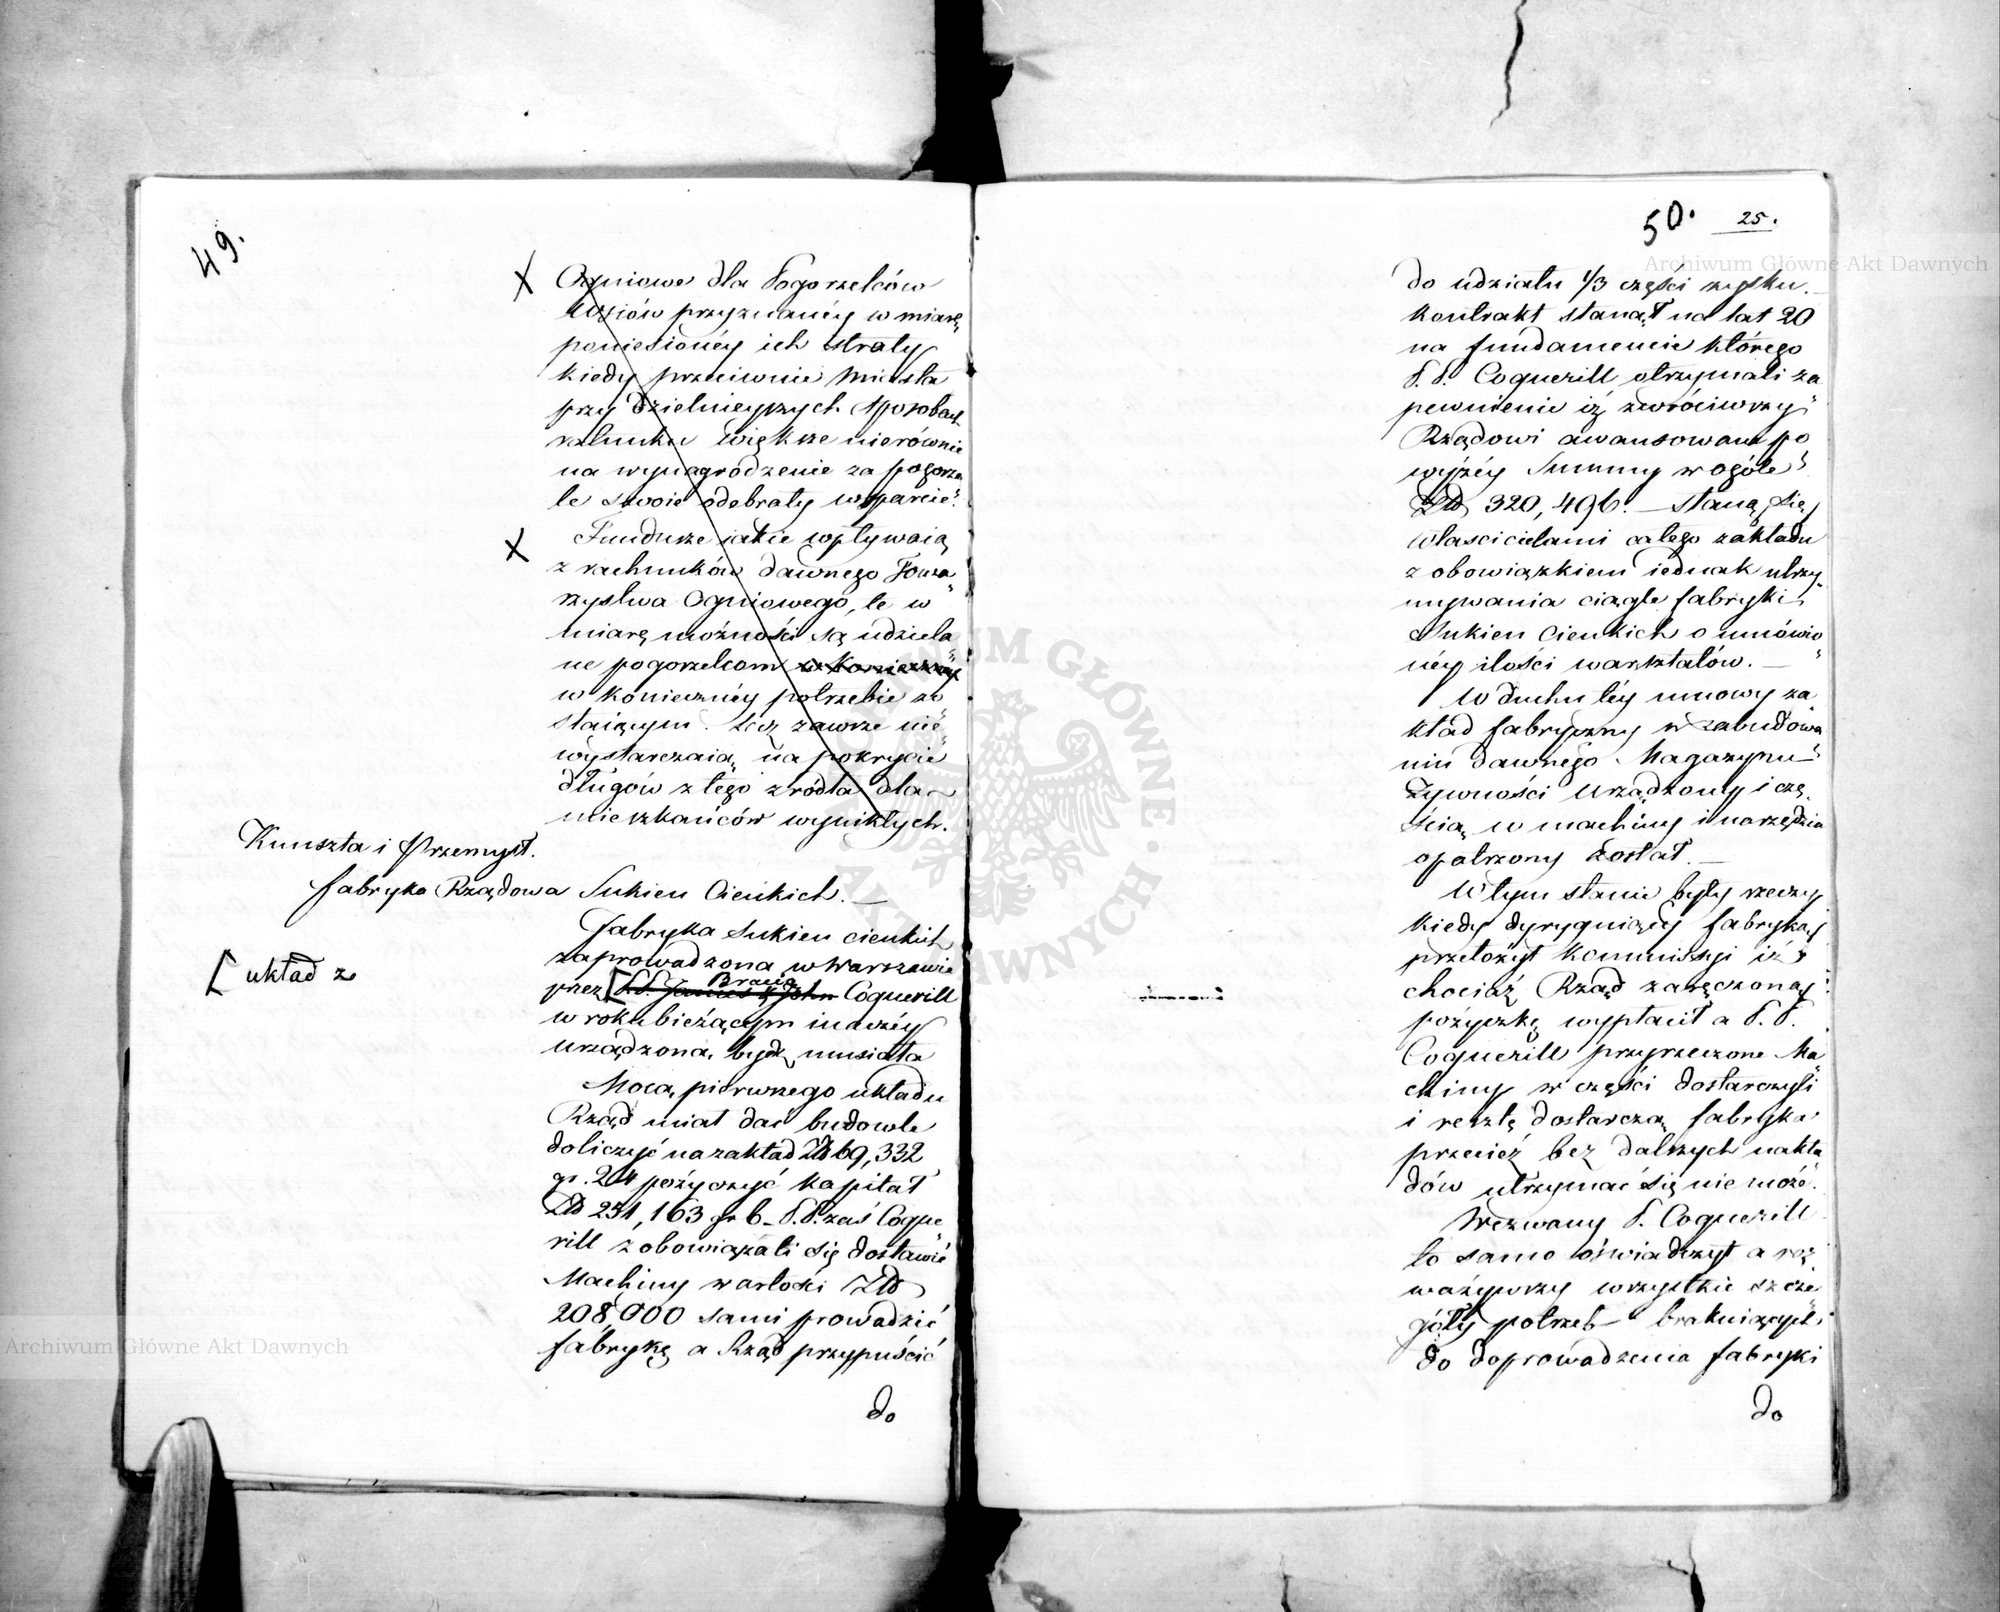 49.
X Ogniowe dla Pogorzelców
Wsiów przyznanéy w miarę
poniesionéy ich straty
kiedy przeciwnie Miasta
przy dzielnieyszych sposobach
ratunku większe nierównie
na wynagrodzenie za pogorze
le swoie odebrały wsparcie.
X Fundusze iakie wpływaią
z rachunków dawnego Towa
rzystwa Ogniowego, te w
miarę możności są udziela
ne pogorzelcom w konieczney
w koniecznéy potrzebie zo
staiącym. Lecz zawsze nie
wystarczaią na pokrycie
długów z tego zródła dla
mieszkańców wynikłych.
Kunszta i Przemysł.
fabryka Rządowa Sukien Cieńkich. —
Fabryka Sukien cienkich
zaprowadzona w Warszawie
[ układ z
Braci
przez [P.P. James & John Coquerill
w roku bieżącym inaczéy
urządzoną bydź musiała
Mocą pierwszego układu
Rząd miał dać budowle
doliczyć na zakład Zł 69,332
gr. 24 pożyczyć kapitał
Zł 251,163 gr 6 – P.P. zaś Coque
rill zobowiązali się dostawić
Machiny wartości Zł
208,000 sami prowadzić
fabrykę a Rząd przypuścić
do
50. 25.
do udziału 1/3 części zysku. —
Kontrakt stanął na lat 20
na fundamencie którego
P.P. Coquerill otrzymali za
pewnienie iż zwróciwszy
Rządowi awansowane po
wyżéy Summy w ogóle
Zł 320,496. — staną się
właścicielami całego zakładu
z obowiązkiem iednak utrzy
mywania ciągle fabryki
Sukien cienkich o umówio
néy ilości warsztatów. —
W duchu téy umowy za
kład fabryczny w zabudowa
niu dawnego Magazynu
Żywności urządzony i czę
ścią w machiny i narzędzia
opatrzony został. —
W tym stanie były rzeczy
kiedy dyryguiący fabryką
przełożył Kommissyi iż
chociaż Rząd zaręczoną
pożyczkę wypłacił a P.P.
Coquerill przyrzeczone Ma
chiny w części dostarczyli
i resztę dostarczą fabryka
przecież bez dalszych nakła
dów utrzymać się nie może.
Wezwany P. Coquerill
to samo oświadczył a roz
ważywszy wszystkie szcze
góły potrzeb brakuiących
do doprowadzenia fabryki
do
Archiwum Główne Akt Dawnych
Archiwum Główne Akt Dawnych
ARCHIWUM GŁÓWNE AKT DAWNYCH